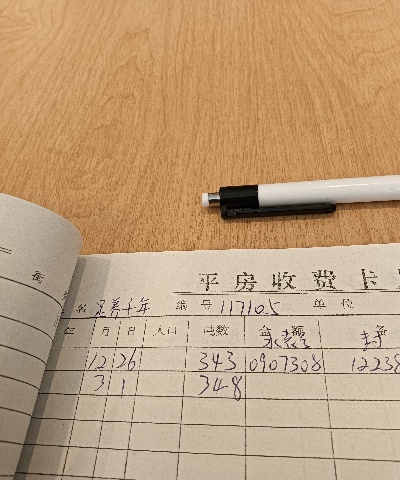 街
平房收费卡
名 年 编号 117105 单位
年 月 日 人口 吨数 金额 备
12 26 343 0907308 12238
3 1 348